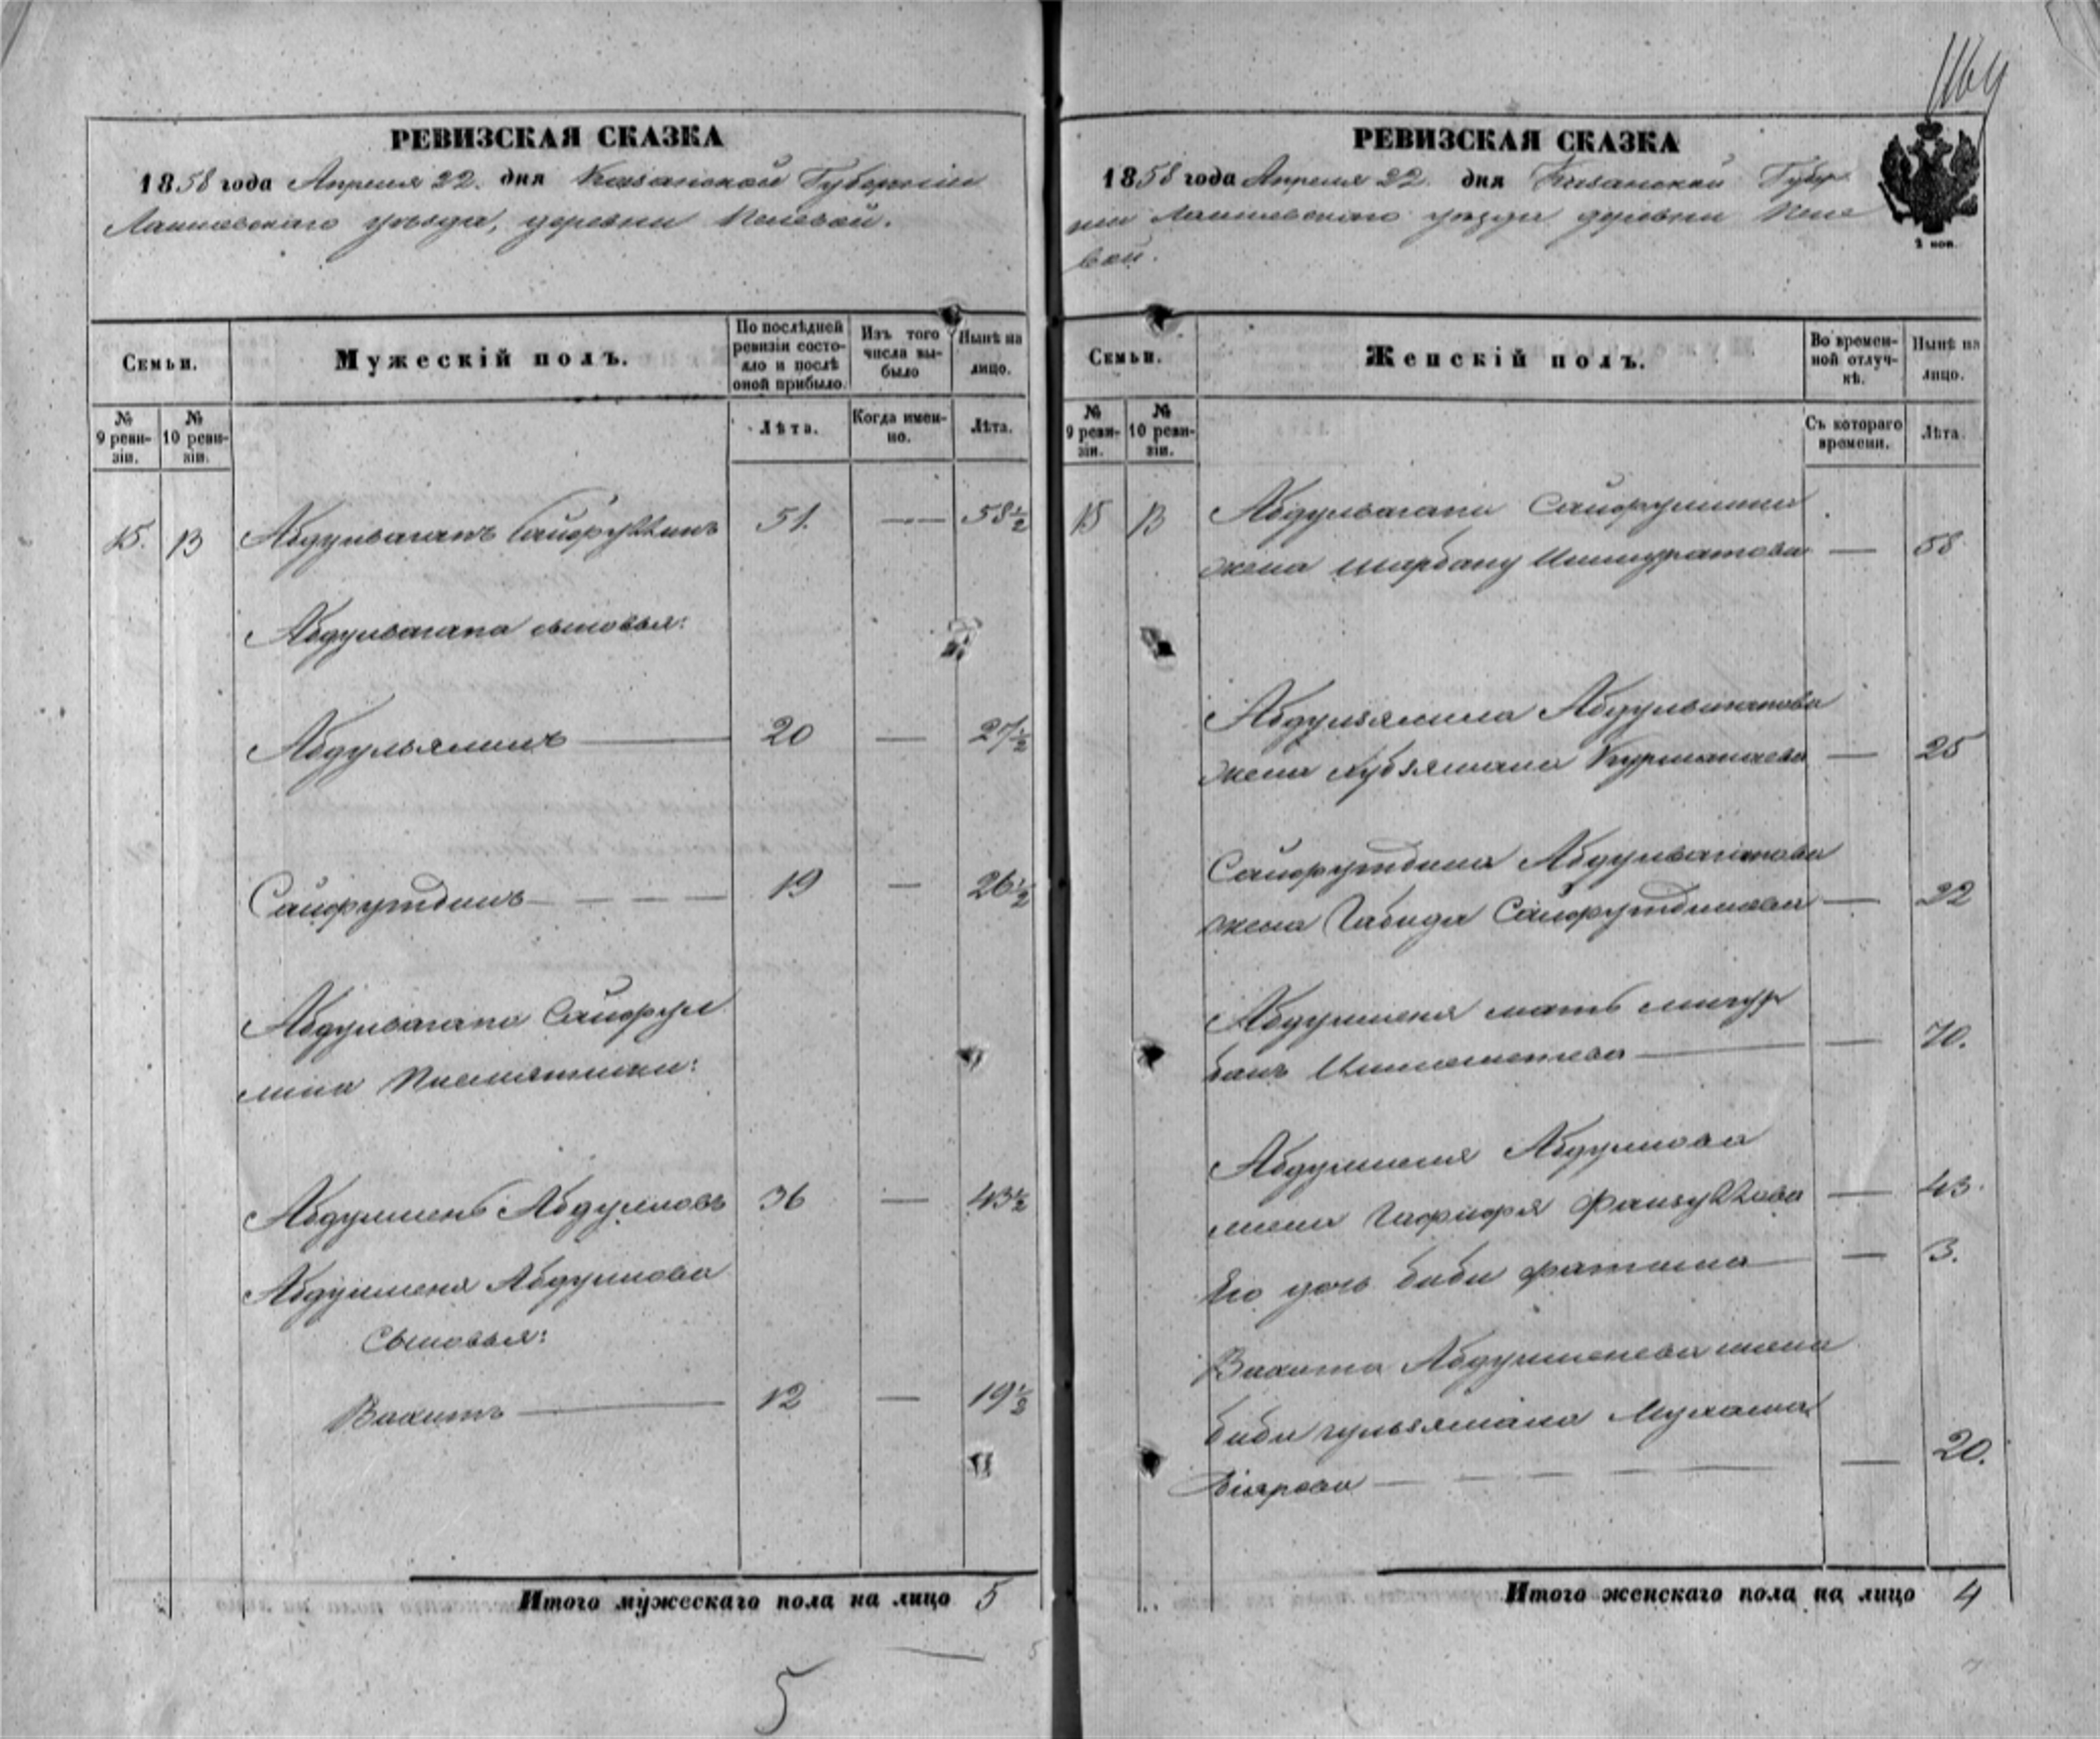 1164
РЕВИЗСКАЯ СКАЗКА
1858 года Апреля 22. дня Казанской Губернии
Лаишевскаго уѣзда, деревни Мелевой.
Семьи.
Мужескій полъ.
По послѣдней ревизіи состояло и послѣ оной прибыло.
Изъ того числа выбыло
Нынѣ на лицо.
№ 9 ревизіи.
№ 10 ревизіи.
Лѣта.
Когда именно.
Лѣта.
15. 13 Абдулваганъ Сайфуллинъ 51. — 58½
Абдулвагапа сыновья:
Абдульяминъ — 20 — 27½
Сайфутдинъ — — — 19 — 26½
Абдулвагапа Сайфул
лина Племянники:
Абдулменъ Абдуловъ 36 — 43½
Абдулменя Абдулова
Сыновья:
Вахитъ — 12 — 19½
Итого мужескаго пола на лицо 5
5
РЕВИЗСКАЯ СКАЗКА
1858 года Апреля 22. дня Казанской Губер
нии Лаишевскаго уѣзда деревни Меле
вой.
2 коп.
Семьи.
Женскій полъ.
Во временной отлучкѣ.
Нынѣ на лицо.
№ 9 ревизіи.
№ 10 ревизіи.
Съ котораго времени.
Лѣта.
15 13 Абдулвагапа Сайфуллина
жена Шарбану Ишмуратова — 58
Абдульямина Абдулвагапова
жена Хубзямала Курманаева — 25
Сайфутдина Абдулвагапова
жена Габида Сайфутдинова — 22
Абдулменя мать
— — 70.
Абдулменя Абдулова
жена Гафифя Файзуллова — 43.
Его дочь Биби фатима — 3.
Вахита Абдулменева жена
биби гульзямала
— — — — 20.
Итого женскаго пола на лицо 4